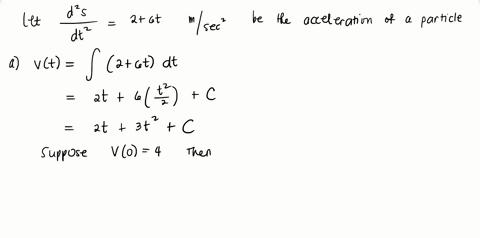 Let d²s/dt² = 2+6t m/sec² be the acceleration of a particle
a) V(t) = ∫ (2+6t) dt
= 2t + 6(t²/2) + C
= 2t + 3t² + C
Suppose V(0) = 4 Then